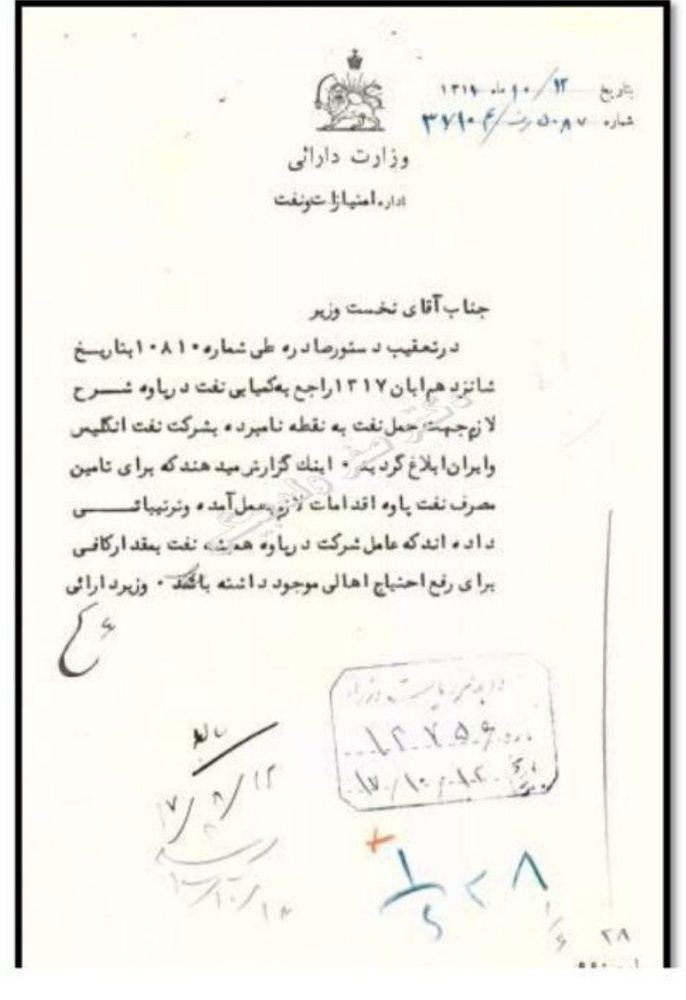 بتاریخ ۱۲/ ۱۰ ماه ۱۳۱۷
شماره ۵۰۸۷
وزارت دارائی
اداره امتیازات ونفت
جناب آقای نخست وزیر
درتعقیب دستورصادره طی شماره ۱۰۸۱۰ بتاریخ
شانزدهم ابان ۱۳۱۷ راجع بکمیابی نفت درپاوه شرح
لازم جهت حمل نفت به نقطه نامبرده بشرکت نفت انگلیس
وایران ابلاغ گردید ۰ اینك گزارش میدهندکه برای تامین
مصرف نفت پاوه اقدامات لازم بعمل آمده وترتیباتی
داده اندکه عامل شرکت درپاوه همیشه نفت بمقدارکافی
برای رفع احتیاج اهالی موجود داشته باشد ۰ وزیردارائی
۱۲۷۵۶
۱۷/۱۰/۱۲
۱۷/۸/۱۲
۲۸